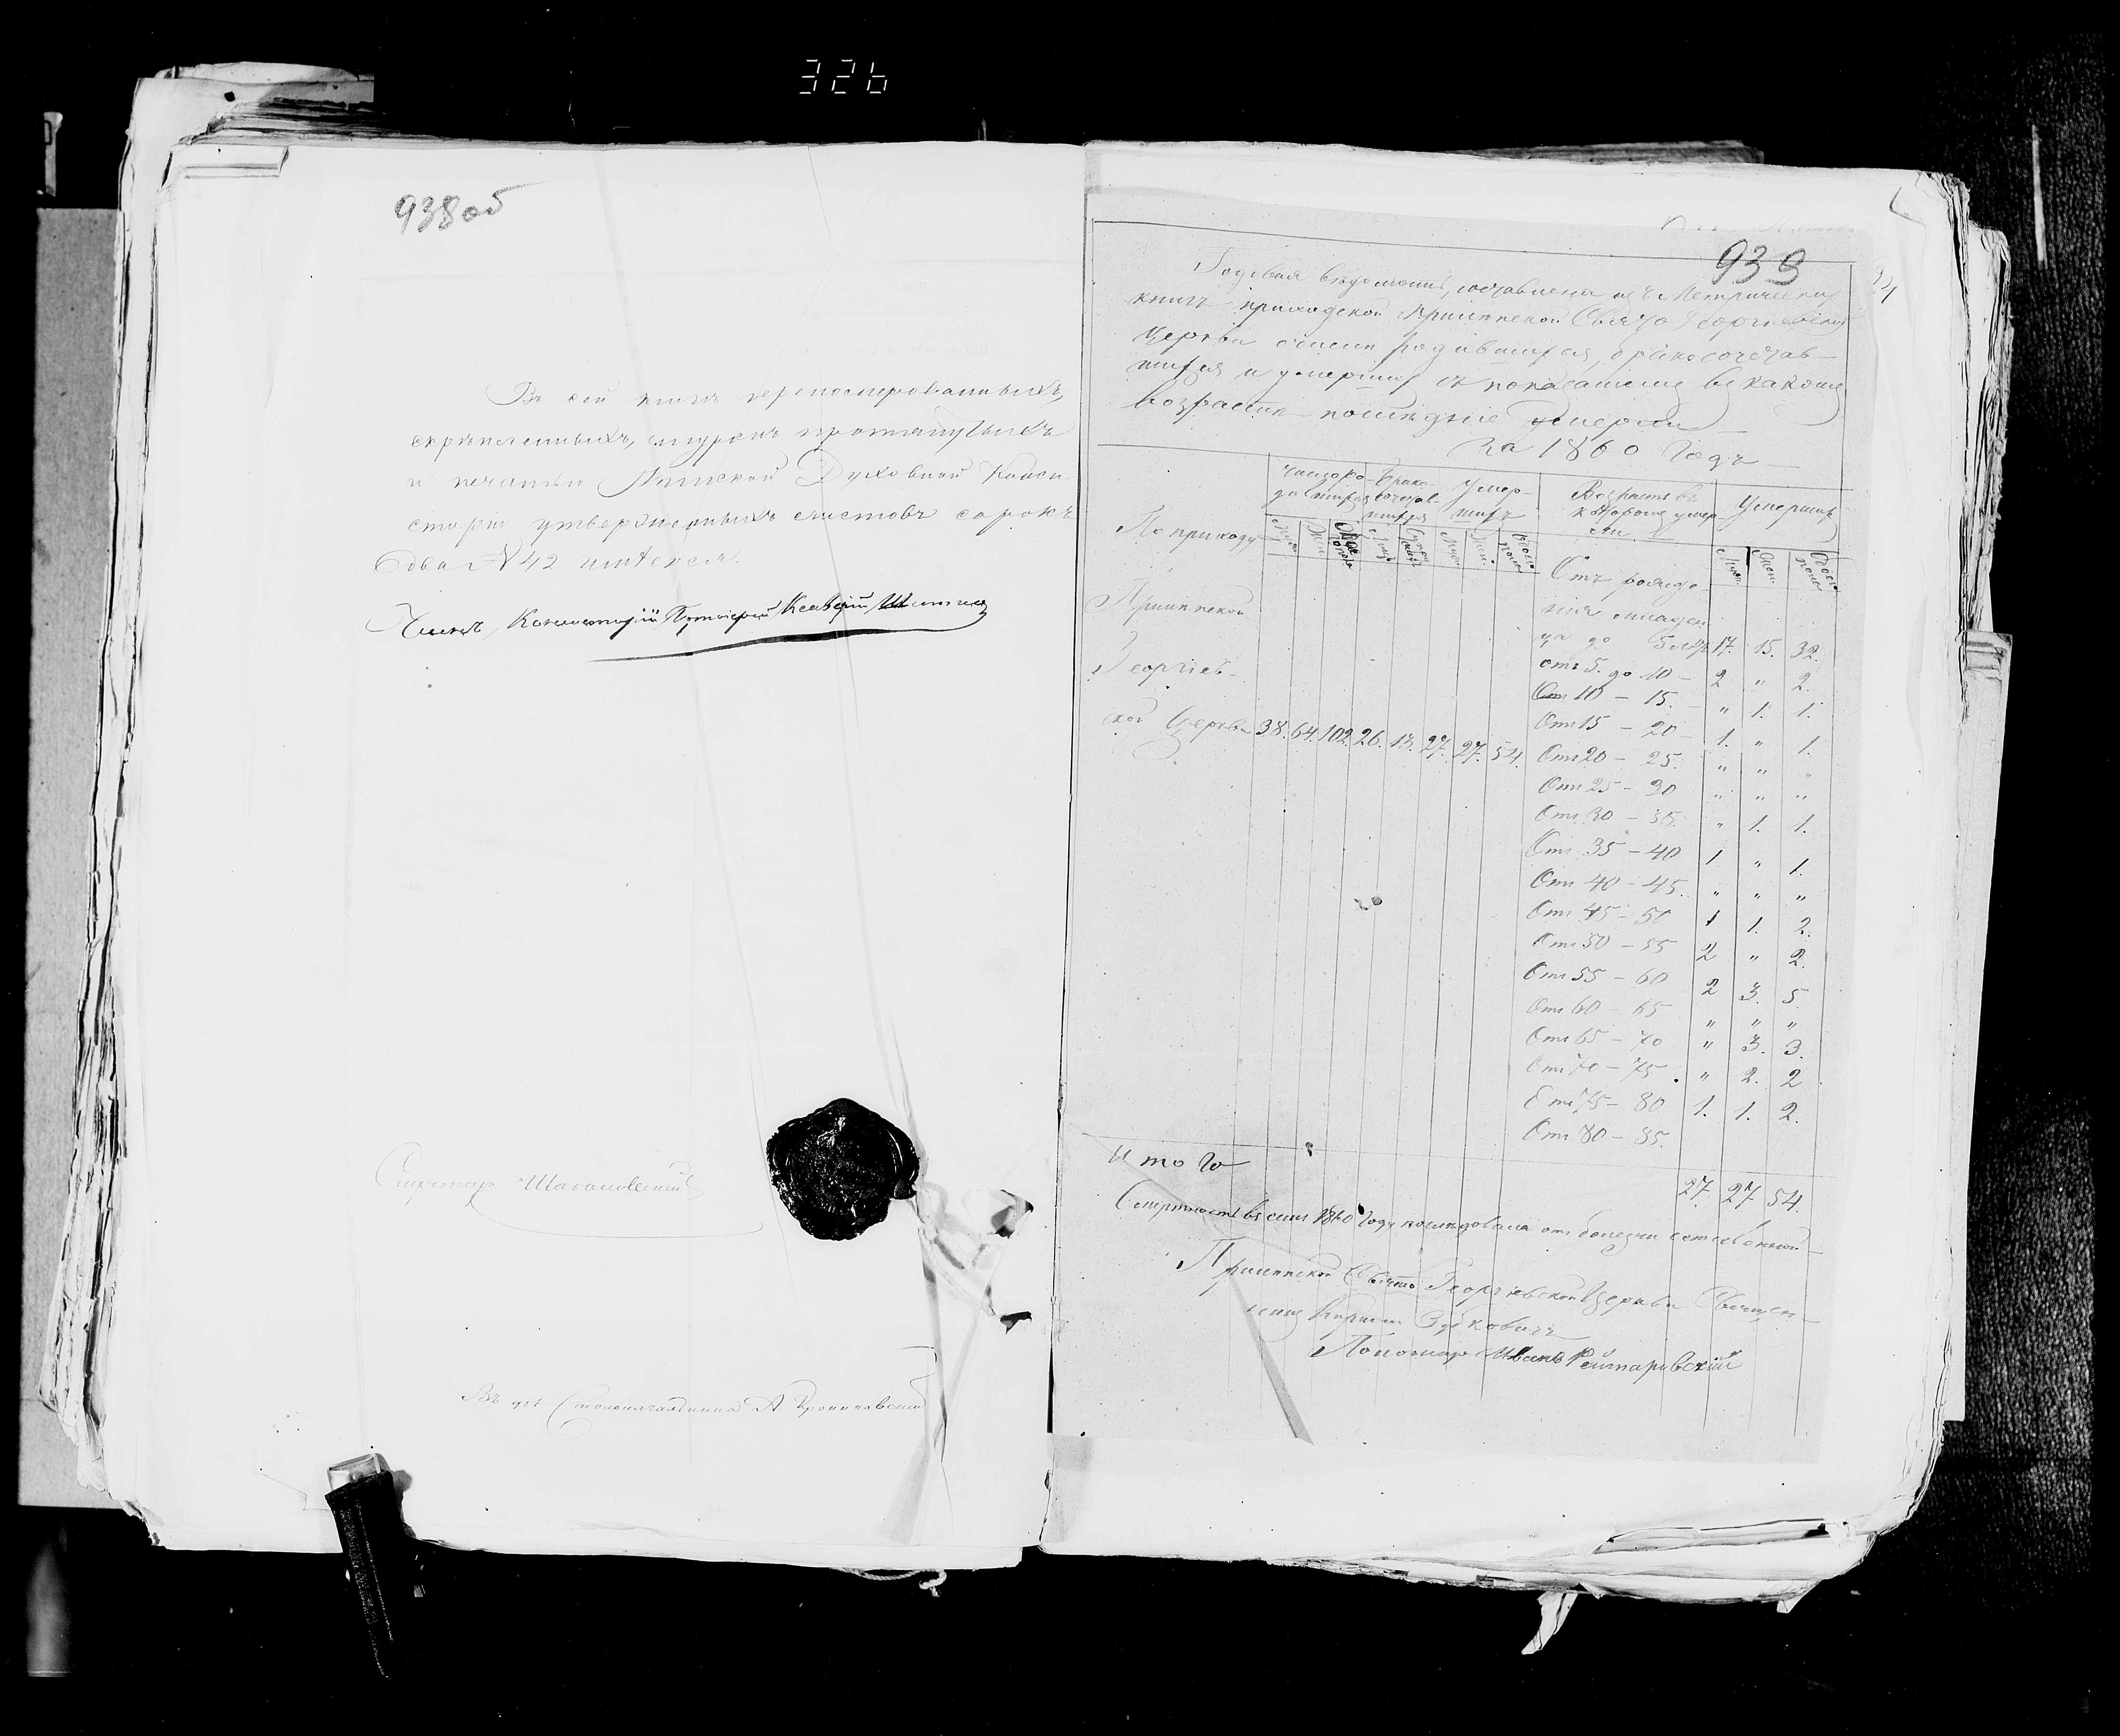 326
938 об
Въ сей книгѣ перенумерованныхъ,
скрѣпленныхъ, шнуромъ протянутыхъ
и печатью Минской Духовной Конси
сторіи утвержденныхъ листовъ сорокъ
два № 42 имѣется.
Членъ, Консисторіи Протоіерей
Секретарь
Въ дол. Столоначальника А.
939
Годовая вѣдомость, составлена изъ Метрическихъ
книгъ приходской Свято Георгіевской
церкви о числѣ родившихся, бракосочетав-
шихся и умершихъ съ показаніемъ въ какомъ
возрастѣ послѣдніе умерли
за 1860 Годъ
Число ро- Брако- Умер- Возрастъ въ Умершихъ
дившихся сочетав- шихъ которомъ умер
шихся ли
По приходу Муж. Жен. Обое пола Муж. Жен. Обое пола Муж. Жен. Обое пола
Отъ рожде-
нія младен
ца до 5 лѣтъ 17. 15. 32.
отъ 5. до 10 - 2 " 2.
Георгіев-
Отъ 10 - 15. " 1. 1.
ской Церкви 38. 64. 102. 26. 18. 27. 27. 54.
Отъ 15 - 20 - 1. " 1.
Отъ 20 - 25. " " "
Отъ 25 - 30 " " "
Отъ 30 - 35. " 1. 1.
Отъ 35 - 40 1 " 1.
Отъ 40 - 45. " " "
Отъ 45 - 50 1 1. 2.
Отъ 50 - 55 2 " 2.
Отъ 55 - 60 2 3. 5.
Отъ 60 - 65 " " "
Отъ 65 - 70 " 3. 3.
Отъ 70 - 75 " 2. 2
Отъ 75 - 80 1. 1. 2.
Отъ 80 - 85.
Итого 27. 27 54.
Смертность въ семъ 1860 Году послѣдовала отъ болезни естественной
Свято Георгіевской Церкви Священ-
никъ
Пономарь Иванъ